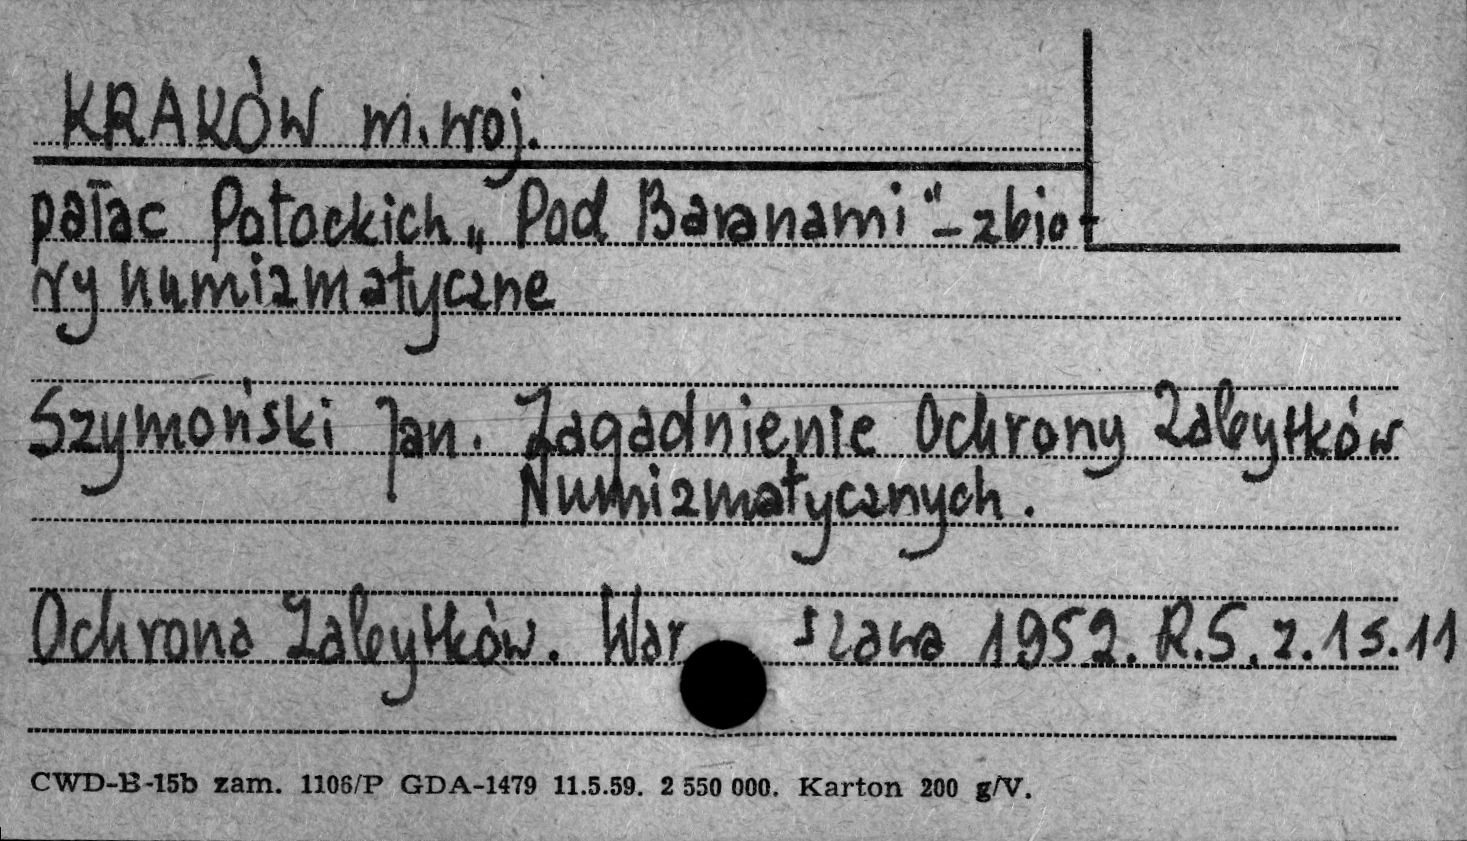 KRAKÓW m. woj.
pałac Potockich „Pod Baranami" - zbio-
ry numizmatyczne
Szymoński Jan. Zagadnienie Ochrony Zabytków
Numizmatycznych.
Ochrona Zabytków. War szawa 1952. R.5. z.1 s.11
CWD-B-15b zam. 1106/P GDA-1479 11.5.59. 2 550 000. Karton 200 g/V.